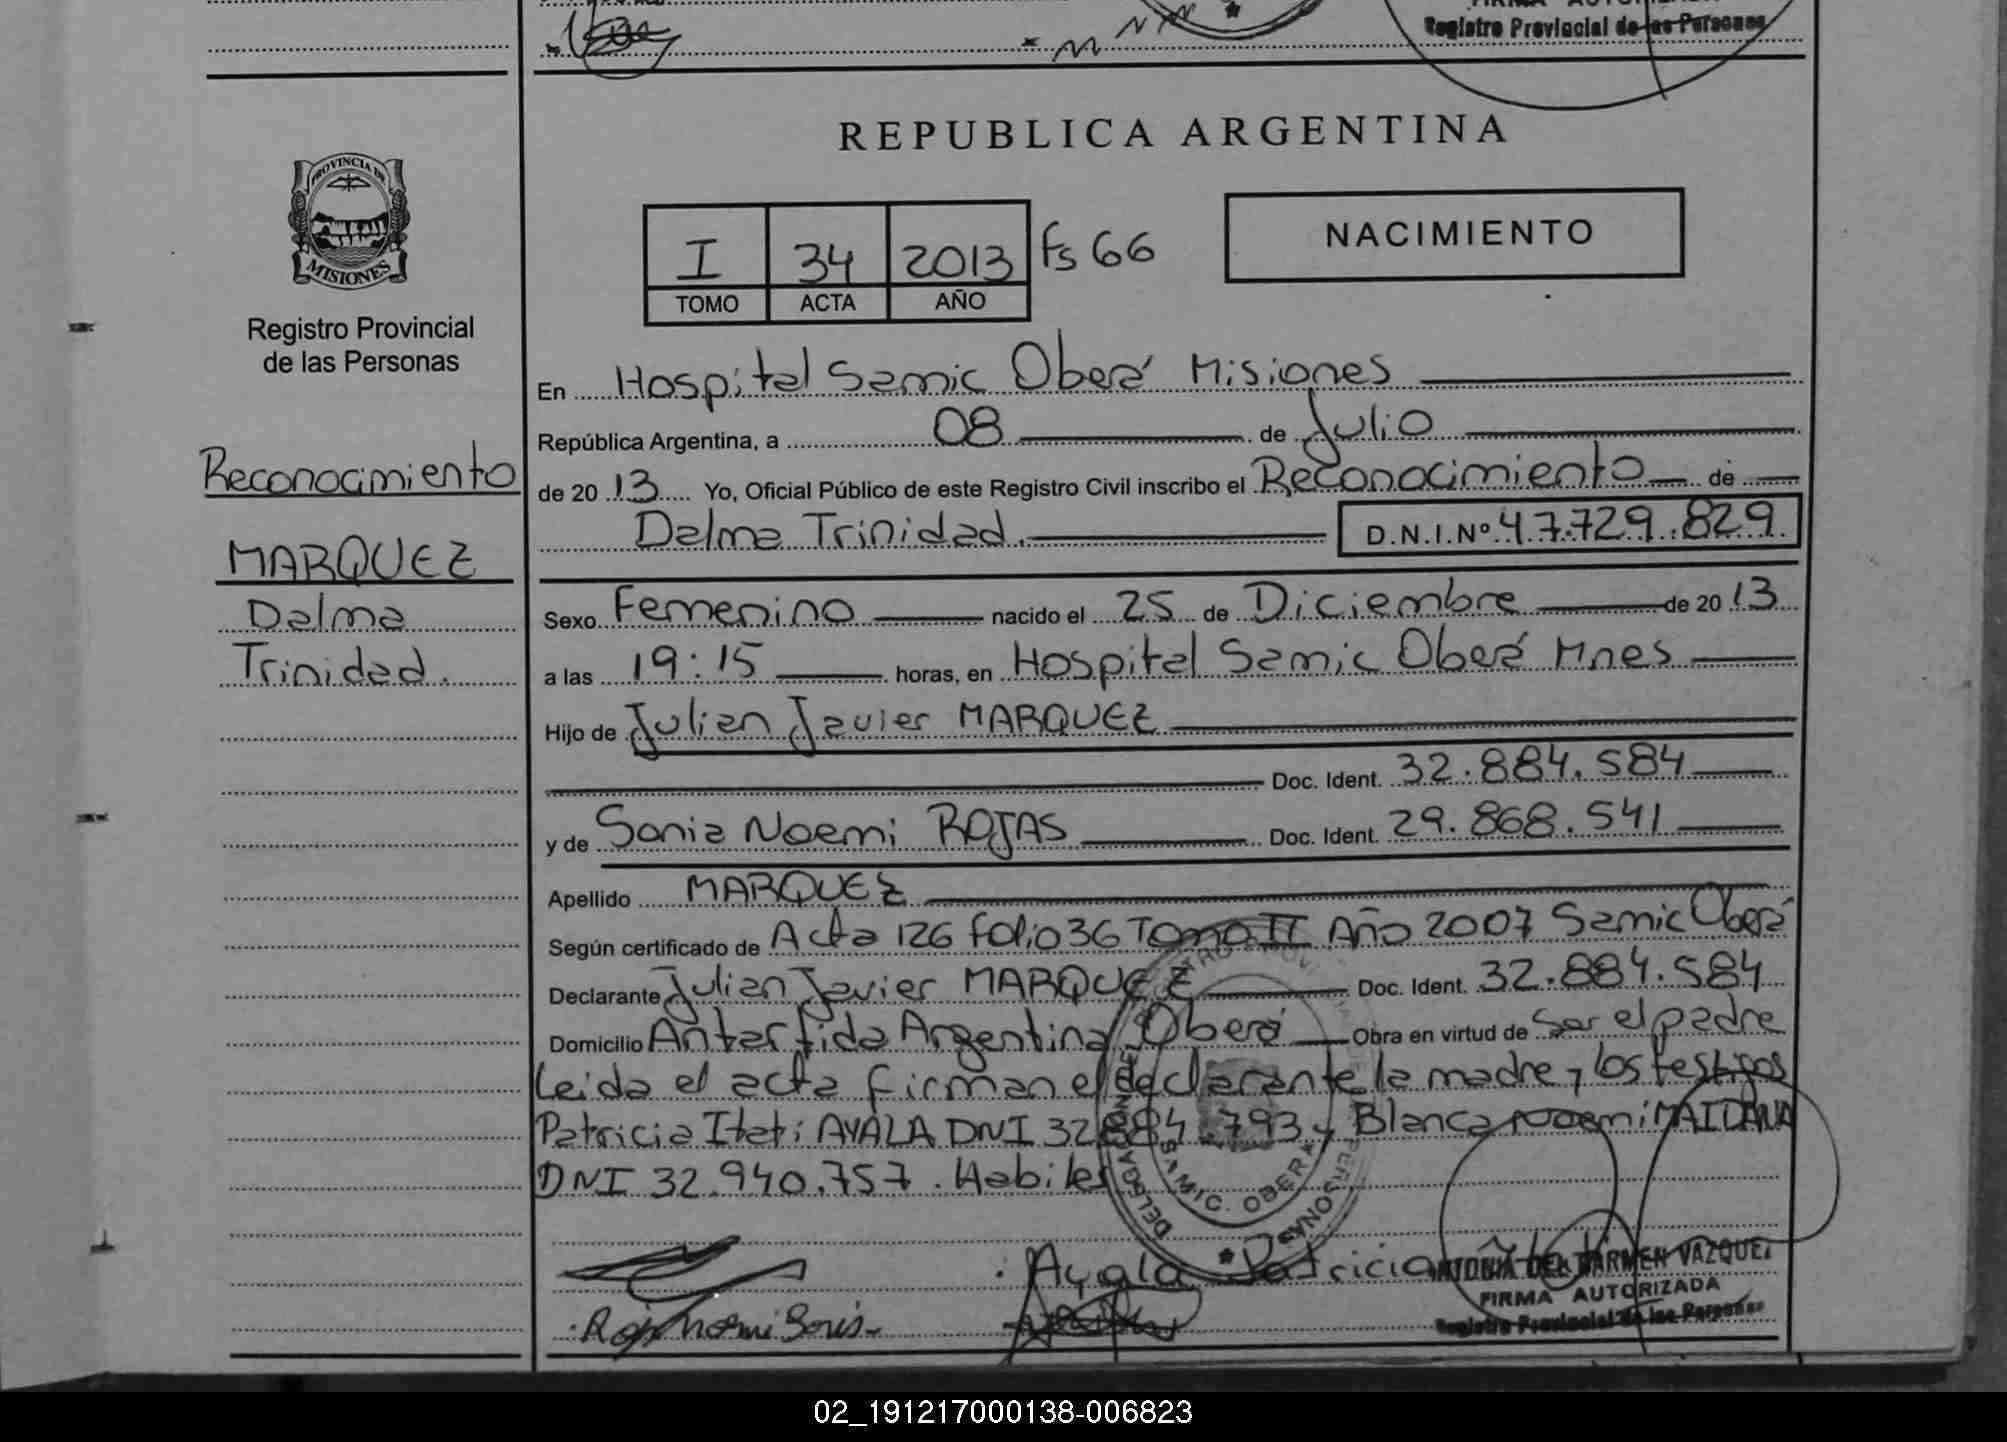 Registro Provincial de las Personas
REPUBLICA ARGENTINA
PROVINCIA DE
MISIONES
Registro Provincial
de las Personas
I 34 2013 fs 66
TOMO ACTA AÑO
NACIMIENTO
Reconocimiento
MARQUEZ
Dalma
Trinidad.
En Hospital Samic Oberá Misiones
República Argentina, a 08 de Julio
de 2013 Yo, Oficial Público de este Registro Civil inscribo el Reconocimiento de
Dalma Trinidad. D.N.I.Nº 47.729.829.
Sexo Femenino nacido el 25 de Diciembre de 2013
a las 19:15 horas, en Hospital Samic Oberá Mnes
Hijo de Julian Javier MARQUEZ
Doc. Ident. 32.884.584
y de Sonia Noemi ROJAS Doc. Ident. 29.868.541
Apellido MARQUEZ
Según certificado de Acta 126 folio 36 Tomo II Año 2007 Samic Oberá
Declarante Julian Javier MARQUEZ Doc. Ident. 32.884.584
Domicilio Antartida Argentina Oberá Obra en virtud de ser el padre
Leida el acta firman el declarante la madre y los testigos
Patricia Itati AYALA DNI 32.884.793 y Blanca Noemi MAIDANA
DNI 32.940.757. Habiles
DELEGACIÓN SAMIC. OBERA
Ayala Patricia
ANTONIA DEL CARMEN VAZQUEZ
FIRMA AUTORIZADA
Registro Provincial de las Personas
02_191217000138-006823